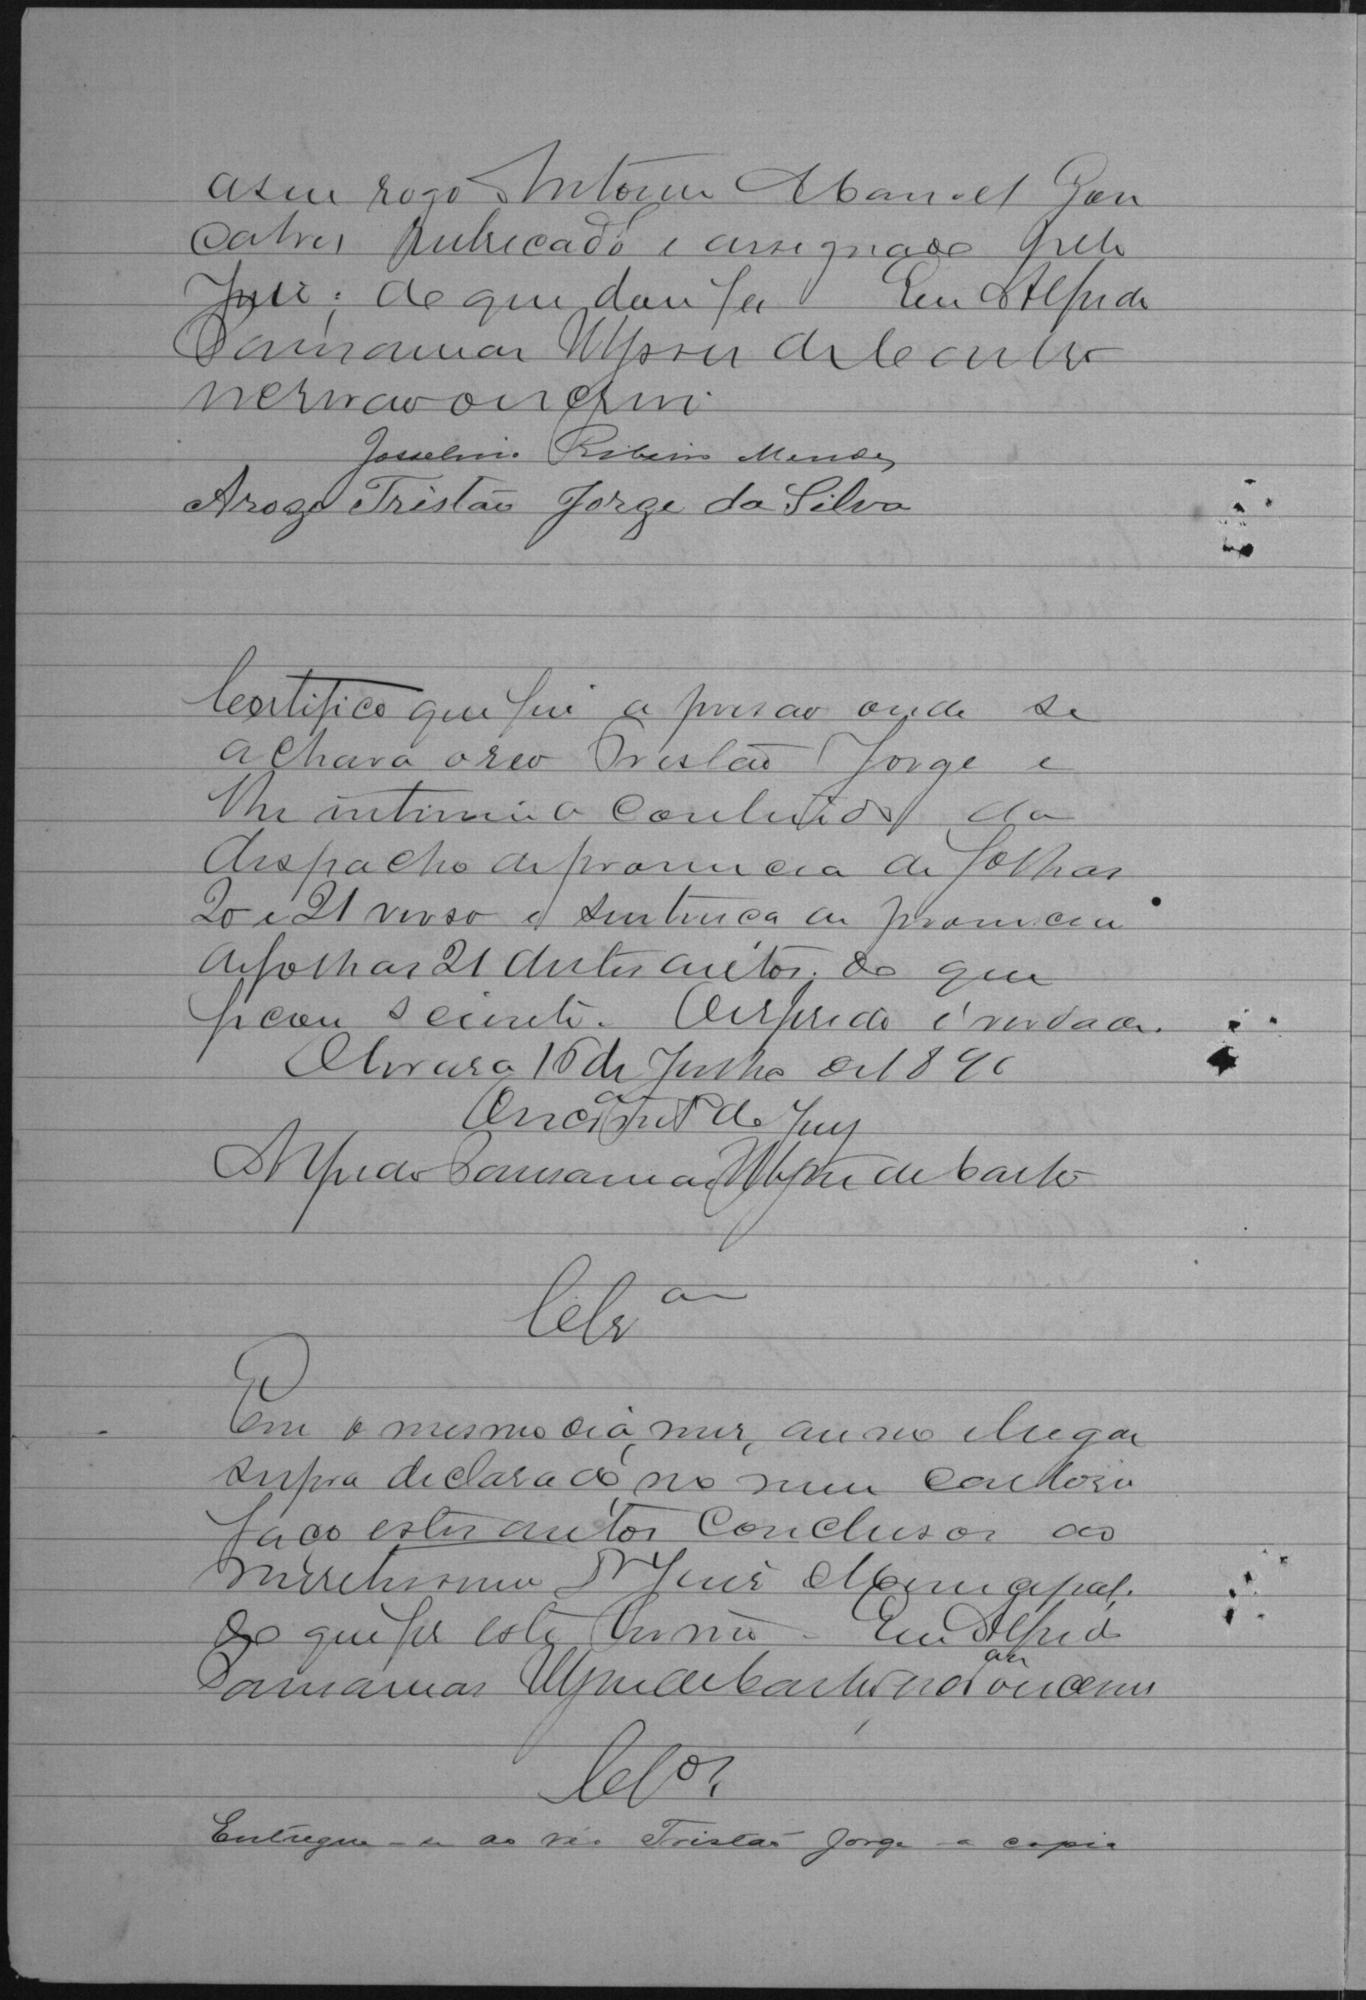 aseu rogo Antonio Manoel Gon
calves rubricado e assignado pelo
Juiz; de que dou fé Eu Alfredo
Ulysses de Castro
escrivão o escrevi
Josselino Ribeiro Mendes
Arogo Tristão Jorge da Silva
Certifico que fui a prisão onde se
achava o reo Tristão Jorge e
lhe intimei o conteúdo da
despacho de pronuncia de folhas
20 e 21 verso e sentença de pronuncia
de folhas 21 destes autos; do que
ficou sciente. O referido é verdade.
16 de Julho de 1896
O escrivão do Jury
Alfredo Ulysses de Castro
Clsam
Em o mesmo dia, mez, anno e lugar
supra declarado, no meu cartorio
faço estes autos conclusos ao
meretissimo Dr Juiz Municipal.
Do que fiz este termo. Eu Alfredo
Ulysses de Castro escrivão o escrevi
Clos.
Entregue-se ao réo Tristão Jorge a copia